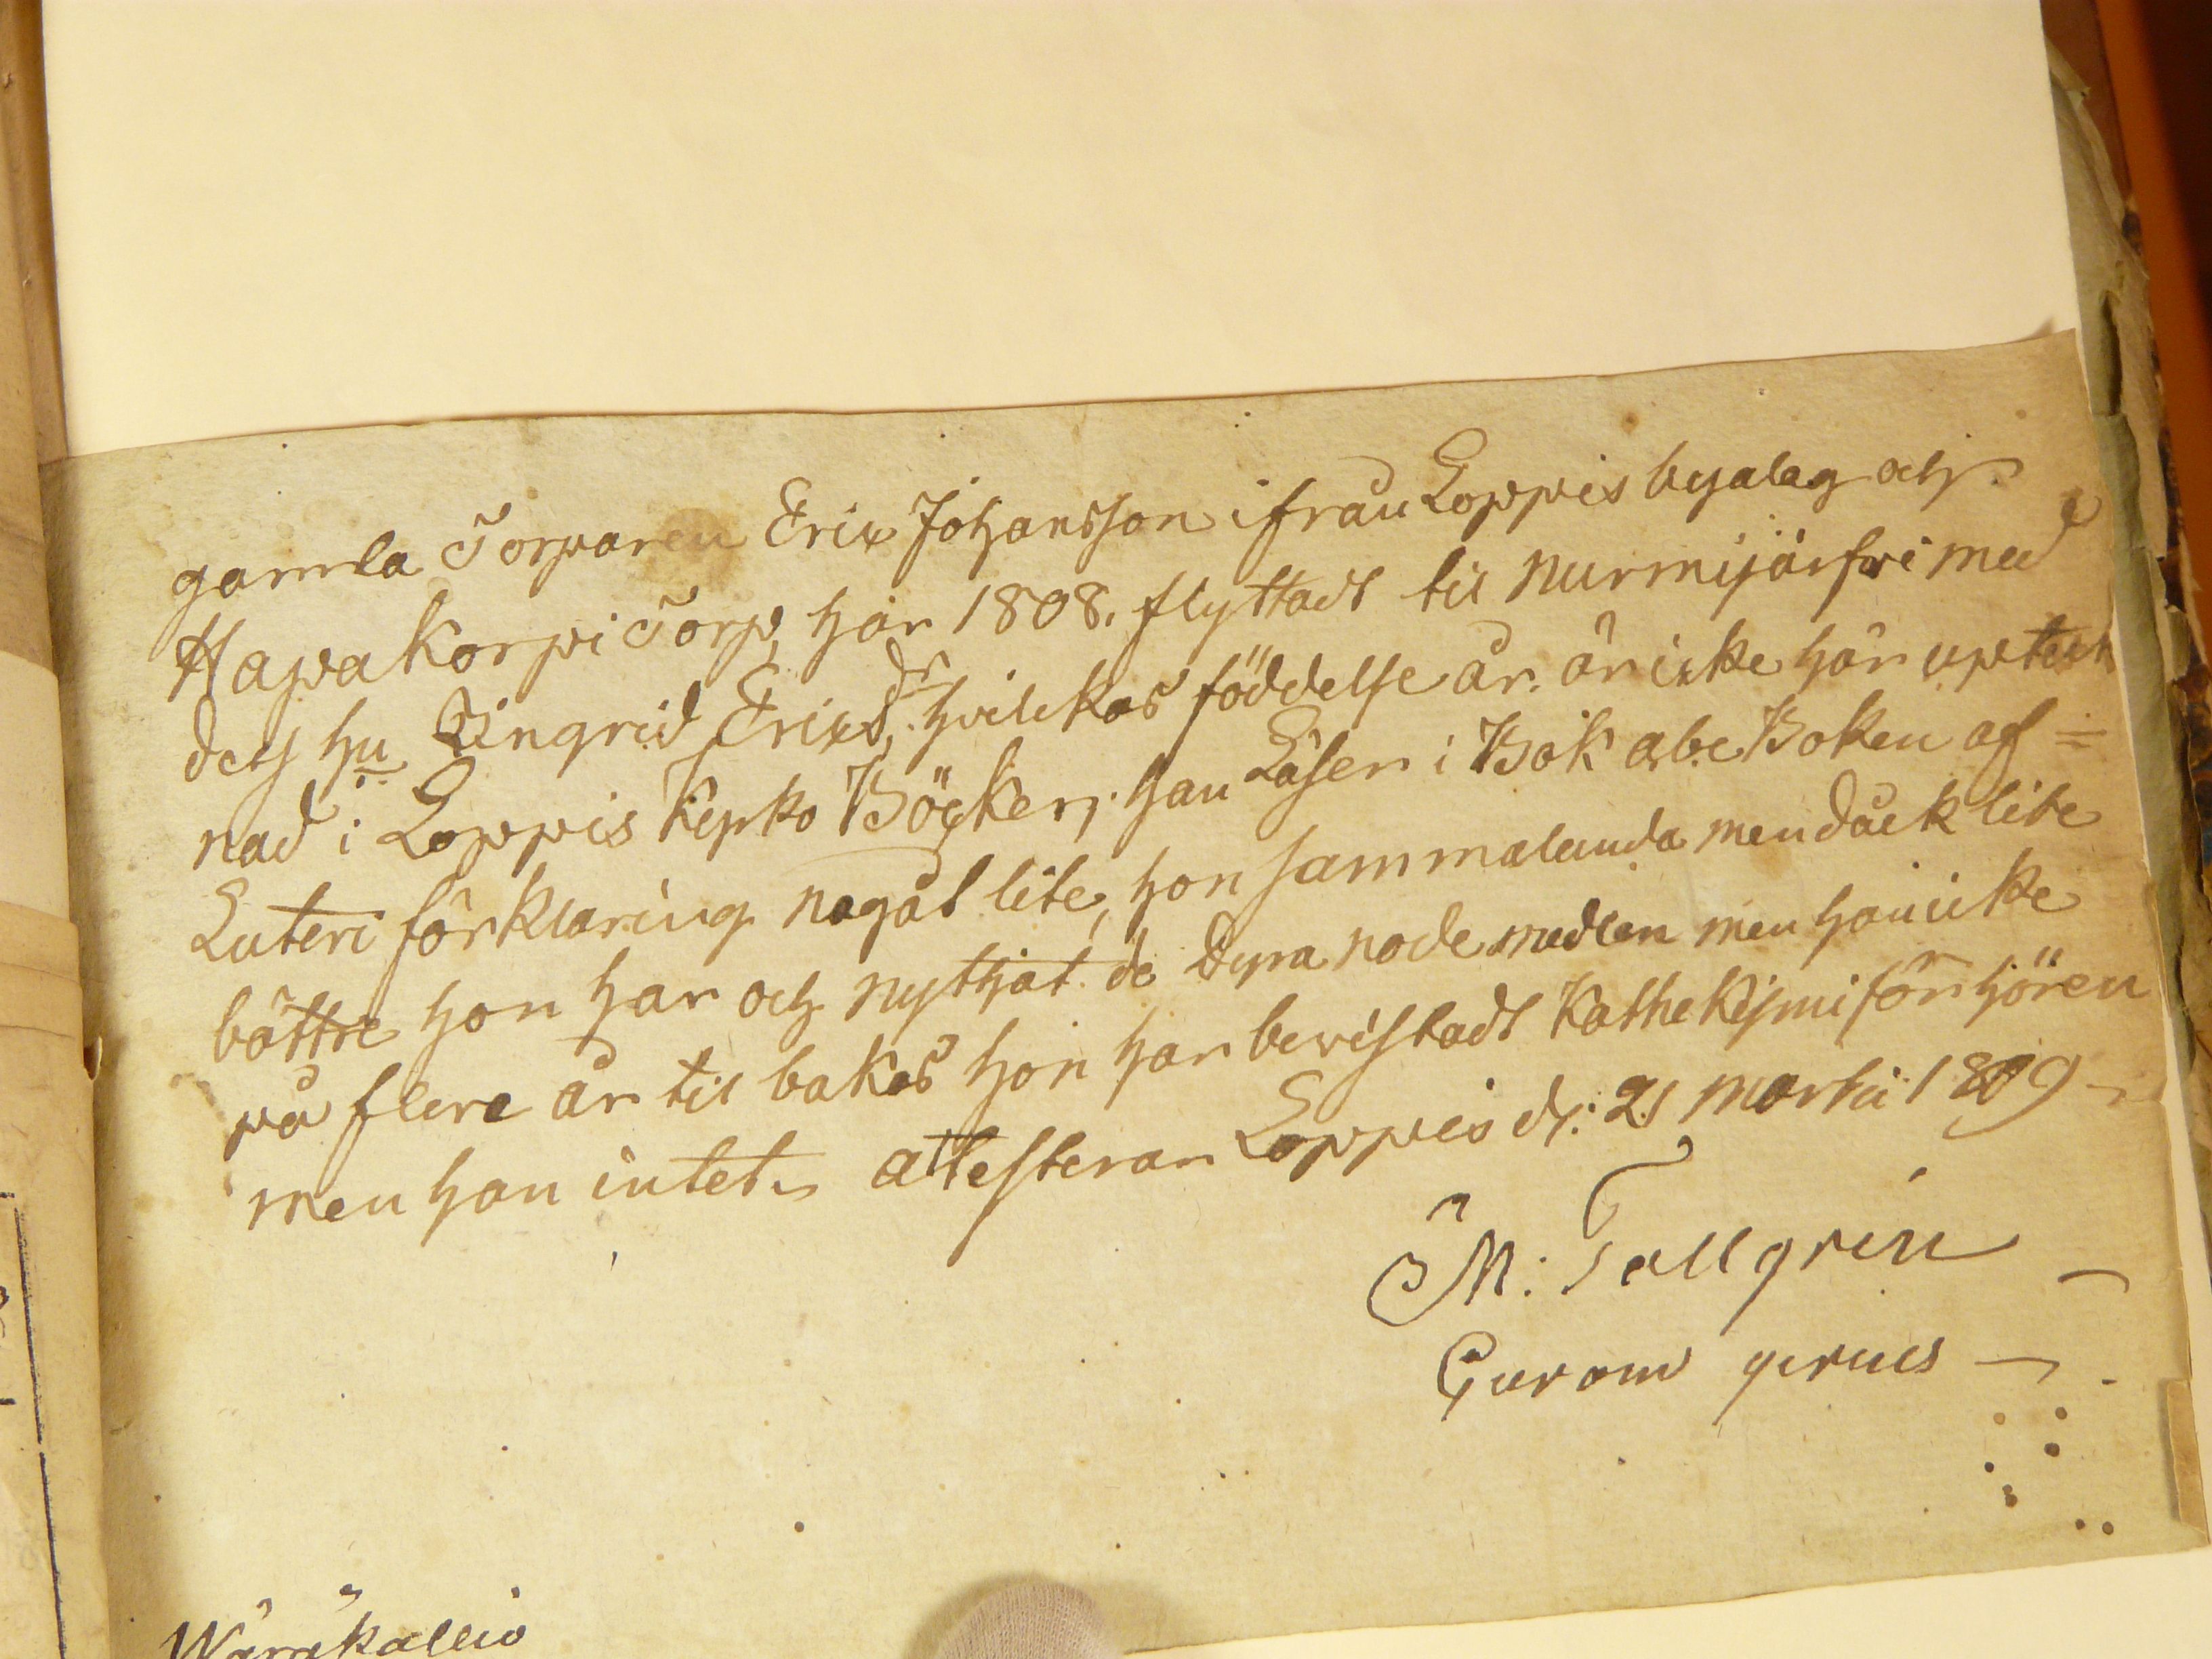 gamla Torparen Erix Johansson ifrån Loppis byalag och
Hapakorpi Torp, har 1808. flyttadt til Nurmijärfwi med
des hu Lingrid Erixdr hvilckas föddelse år är icke här upteck
nad i Loppis Kyrko Böcker, han Läser i Bok abc Boken af =
Luteri förklaring nagåt lite, hon sammalunda men dåck lite
bättre hon har och nythjat de dyra node medlen men han icke
på flere år til bakas hon har bevistadt Kathekismi förhören
men han intet attesterar Loppis d: 21 Martii 1809
M: Tallgrén
Wärräkallio